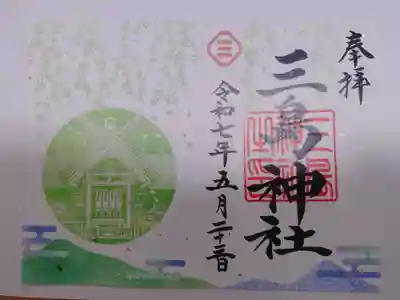 奉拝
三島神社
三
令和七年五月二十三日